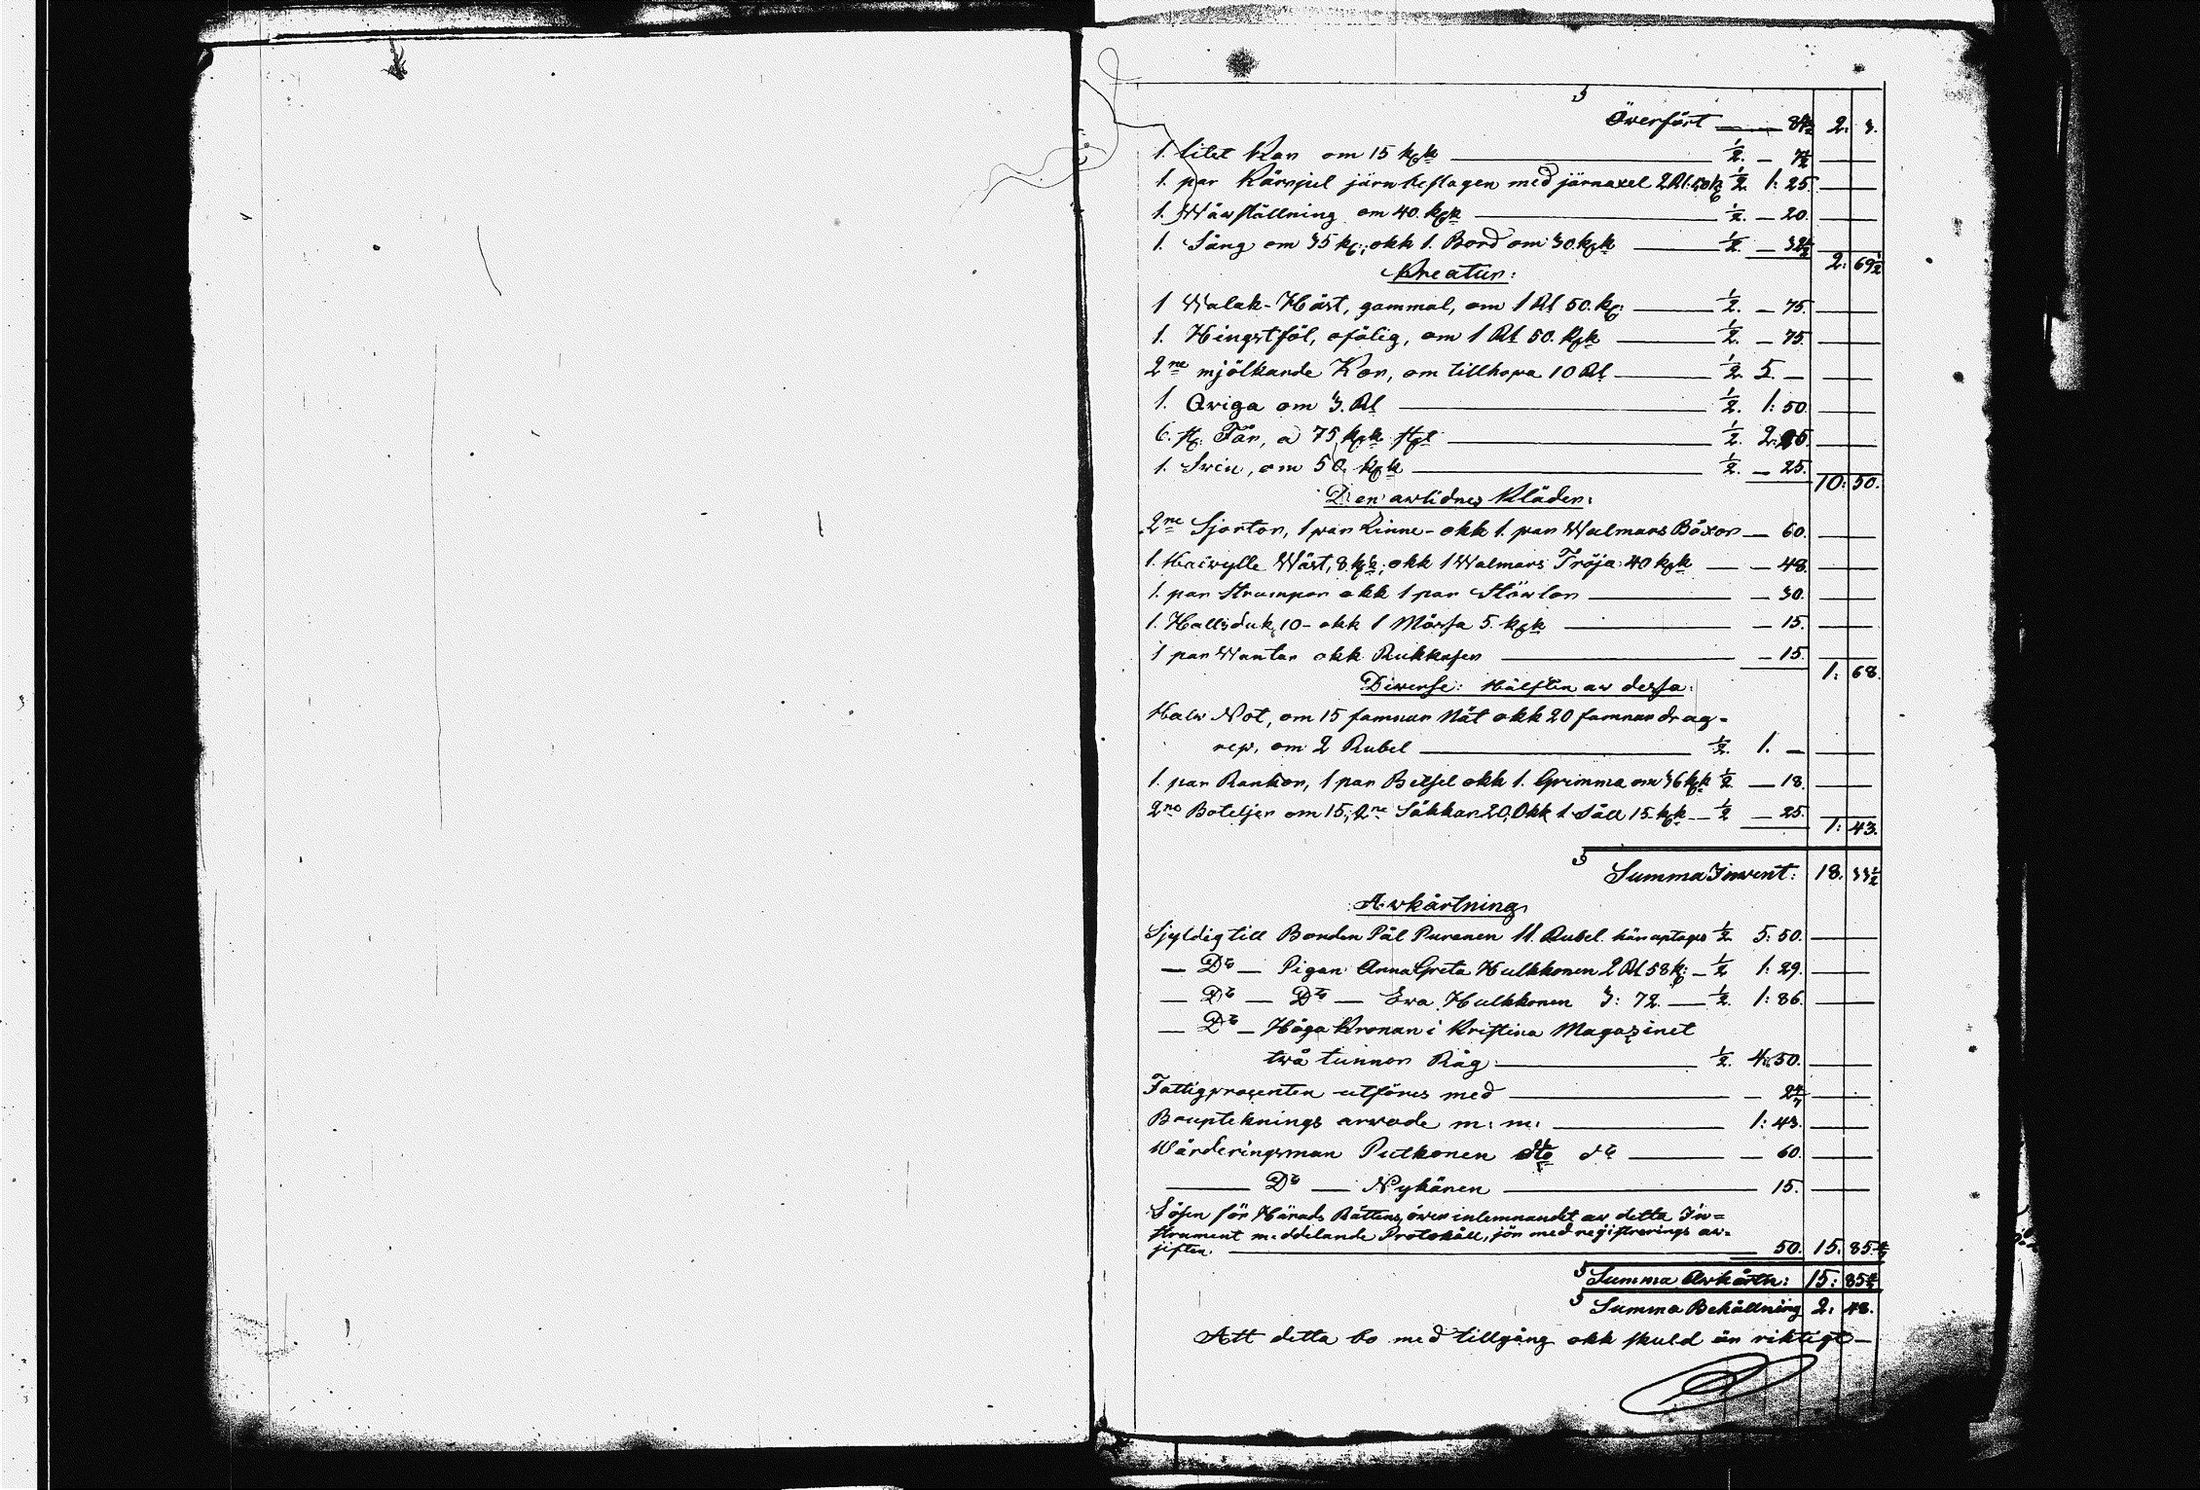 Överfört — 84½ 2: 3.
1. litet Kar om 15 kpk — ½. — 7½
1. par Kärrjul järn beslagen med järnaxel 2 Rl. 50 k ½ 1: 25.
1. Wäwställning om 40. kpk — ½. — 20.
1. Säng om 35 k; okk 1. Bord om 30. kpk — ½. — 32½ 2: 69½
Kreatur:
1 Walak-Häst, gammal, om 1 Rl 50. k: — ½. — 75.
1. Hingstföl, ofölig, om 1 Rl 50. kpk — ½. — 75.
2ne mjölkande Kor, om tillhopa 10 Rl — ½. 5. —
1. Qwiga om 3. Rl — ½. 1: 50.
6. st. Får, a 75 kpk st — ½. 2: 25.
1. Swin, om 50. kpk — ½. — 25. 10: 50.
Den awlidnes Kläder:
2ne Sjortor, 1 par Linne- okk 1. par Walmars Böxor — 60.
1. Halwylle Wäst, 8. kpk; okk 1 Walmars Tröja 40 kpk — 48.
1. par Strumpor okk 1 par Stöwlor — 30.
1. Hallsduk, 10- okk 1 Mössa 5. kpk — 15.
1 par Wantar okk Rukkaser — 15. 1: 68.
Diwerse: Hälften aw dessa:
Halw Not, om 15 famnar Nät okk 20 famnar drag-
rep, om 2 Rubel — ½. 1. —
1. par Rankor, 1 par Betsel okk 1. Grimma om 36 kpk ½ — 18.
2ne Boteljer om 15; 2ne Säkkar 20, Okk 1 Såll 15. kpk — ½ — 25. 1: 43.
Summa Inwent: 18. 33½
Awkårtning
Sjyldig till Bonden Pål Puranen 11. Rubel. här uptages ½ 5: 50.
— Do — Pigan Anna Greta Hulkkonen 2 Rl 58 k: — ½ 1: 29.
— Do — Do — Ewa Hulkkonen 3: 72. — ½. 1: 86.
— Do — Höga Kronan i Kristina Magazinet
twå tunnor Råg — ½. 4: 50.
Fattigprocenten utföres med — 2 4/7
Bouptekningsarwode m: m: — 1: 43.
Wärderingsman Putkonen do — 60.
— Do — Nykänen — 15.
Lösen för Härads Rättens, öwer inlemnandet aw detta In-
strument meddelande Protokåll, jön med registrerings aw-
jiften. — 50. 15. 85 4/7
Summa Awkårtn: 15: 85 4/7
Summa Behållning 2: 48.
Att detta bo med tillgång okk skuld är riktigt —